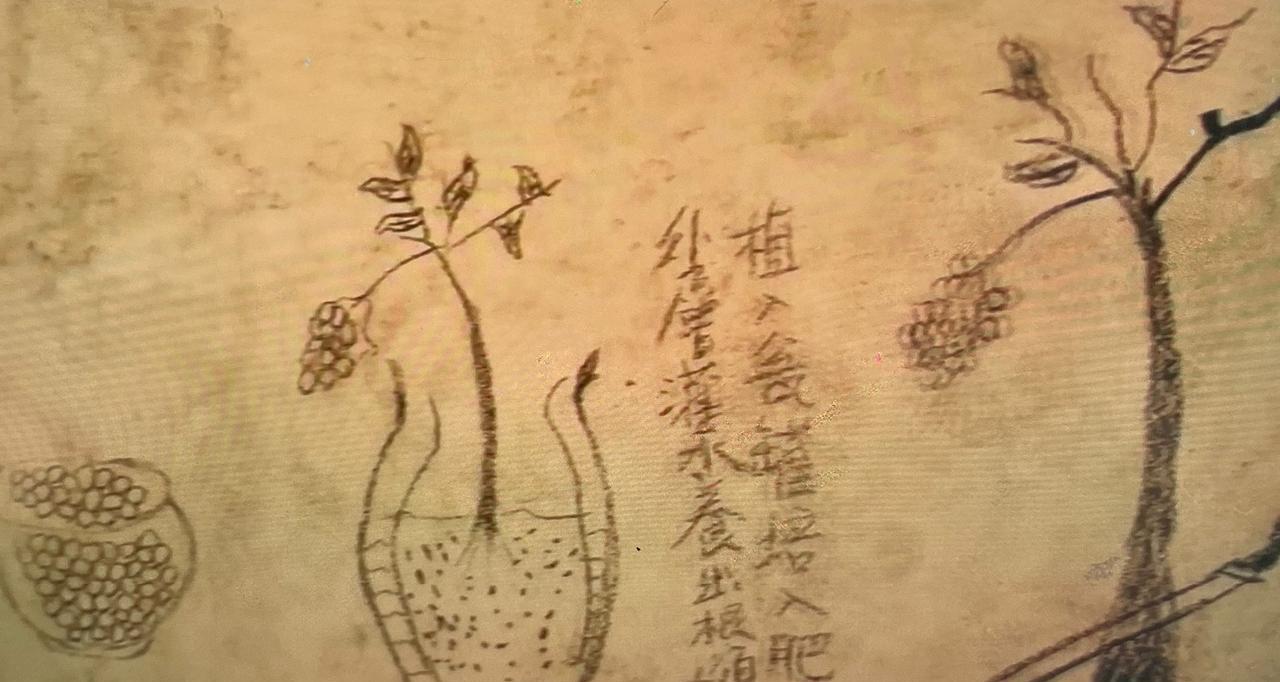 植入瓮罐培入肥
外層灌水養出根